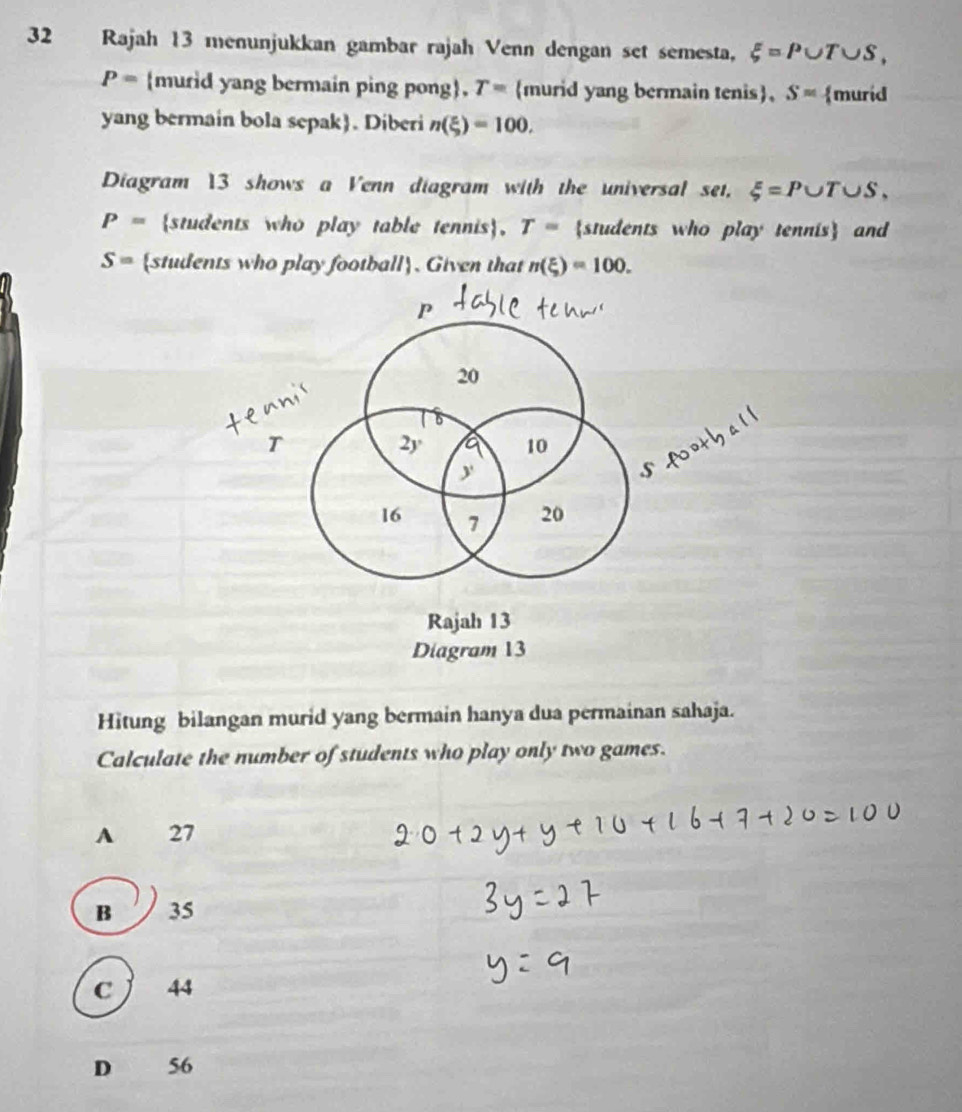 32 Rajah 13 menunjukkan gambar rajah Venn dengan set semesta, ξ = P∪T∪S,
P = {murid yang bermain ping pong}, T = {murid yang bermain tenis}, S = {murid
yang bermain bola sepak}. Diberi n(ξ) = 100.
Diagram 13 shows a Venn diagram with the universal set, ξ = P∪T∪S,
P = {students who play table tennis}, T = {students who play tennis} and
S = {students who play football}. Given that n(ξ) = 100.
P table
20
tennis
T
18
2y 9 10
y
S football
16 7 20
Rajah 13
Diagram 13
Hitung bilangan murid yang bermain hanya dua permainan sahaja.
Calculate the number of students who play only two games.
A 27
20+2y+y+10+16+7+20=100
B 35
3y=27
y=9
C 44
D 56